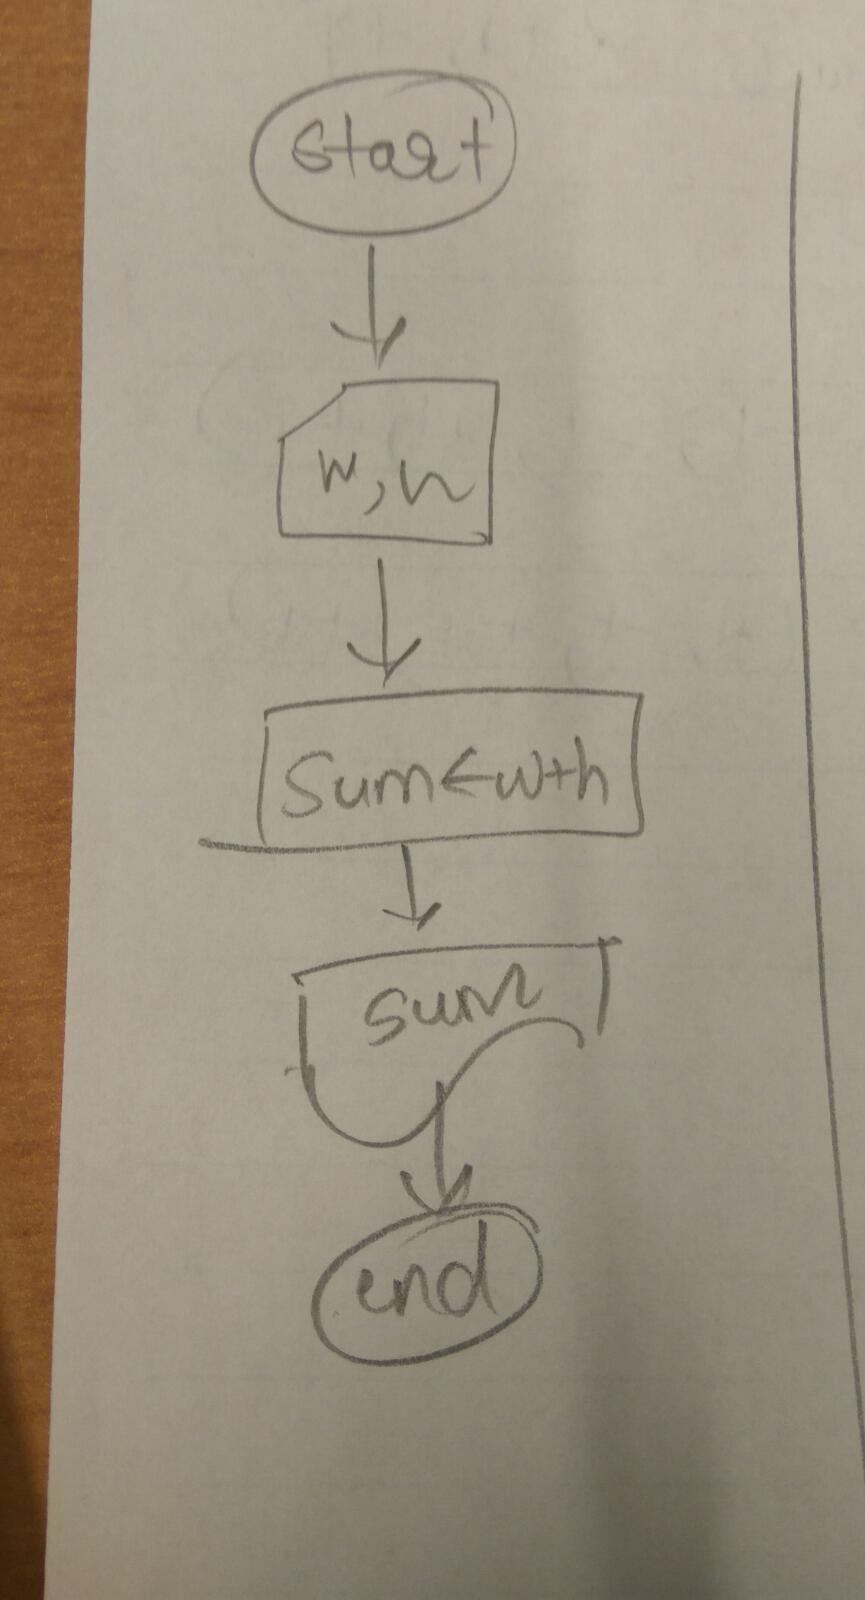 start
w, n
Sum←w+h
Sum
end